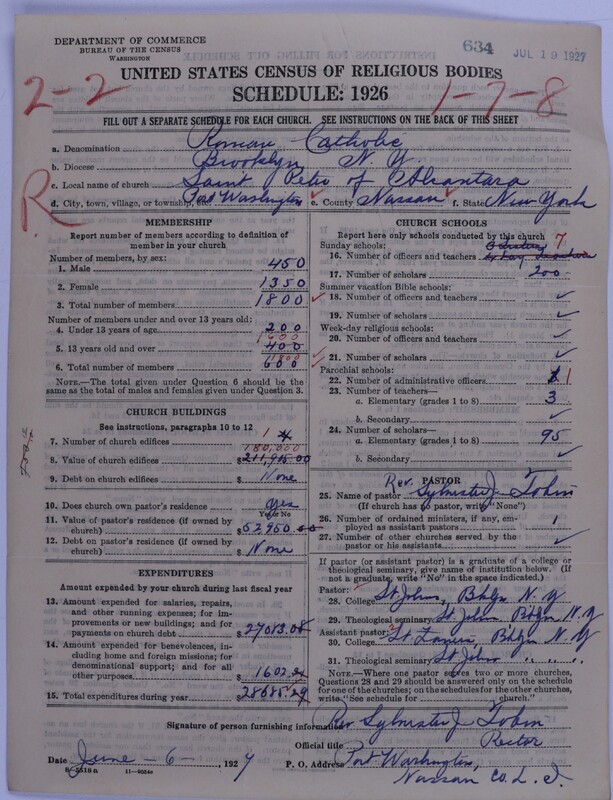 DEPARTMENT OF COMMERCE
BUREAU OF THE CENSUS
WASHINGTON
634
JUL 19 1927
UNITED STATES CENSUS OF RELIGIOUS BODIES
SCHEDULE: 1926
2-2
1-7-8
R
FILL OUT A SEPARATE SCHEDULE FOR EACH CHURCH. SEE INSTRUCTIONS ON THE BACK OF THIS SHEET
a. Denomination Roman Catholic
b. Diocese Brooklyn N. Y.
c. Local name of church Saint Peter of Alcantara
d. City, town, village, or township, Port Washington e. County Nassau f. State New York
MEMBERSHIP
Report number of members according to definition of member in your church
Number of members, by sex:
1. Male 450
2. Female 1350
3. Total number of members 1800
Number of members under and over 13 years old:
4. Under 13 years of age 200
1600
5. 13 years old and over 400
1800
6. Total number of members 600
NOTE.—The total given under Question 6 should be the same as the total of males and females given under Question 3.
CHURCH BUILDINGS
See instructions, paragraphs 10 to 12
7. Number of church edifices 1
180,000
8. Value of church edifices $ 211,915.00
9. Debt on church edifices $ None
10. Does church own pastor's residence yes
Yes or No
11. Value of pastor's residence (if owned by church) $ 52,950.00
12. Debt on pastor's residence (if owned by church) $ None
EXPENDITURES
Amount expended by your church during last fiscal year
13. Amount expended for salaries, repairs, and other running expenses; for improvements or new buildings; and for payments on church debt $ 27083.05
14. Amount expended for benevolences, including home and foreign missions; for denominational support; and for all other purposes $ 1602.24
15. Total expenditures during year $ 28685.29
CHURCH SCHOOLS
Report here only schools conducted by this church
Sunday schools:
16. Number of officers and teachers 7
17. Number of scholars 200
Summer vacation Bible schools:
18. Number of officers and teachers
19. Number of scholars
Week-day religious schools:
20. Number of officers and teachers
21. Number of scholars
Parochial schools:
22. Number of administrative officers 1
23. Number of teachers—
a. Elementary (grades 1 to 8) 3
b. Secondary
24. Number of scholars—
a. Elementary (grades 1 to 8) 95
b. Secondary
PASTOR
25. Name of pastor Rev. Sylvester J. Tobin
(If church has no pastor, write "None")
26. Number of ordained ministers, if any, employed as assistant pastors 1
27. Number of other churches served by the pastor or his assistants
If pastor (or assistant pastor) is a graduate of a college or theological seminary, give name of institution below. (If not a graduate, write "No" in the space indicated.)
Pastor:
28. College St Johns, Bklyn N. Y
29. Theological seminary St John Bklyn N. Y
Assistant pastor:
30. College St Bklyn N. Y
31. Theological seminary St John " " "
NOTE.—Where one pastor serves two or more churches, Questions 28 and 29 should be answered only on the schedule for one of the churches; on the schedules for the other churches, write "See schedule for church."
Signature of person furnishing information Rev. Sylvester J. Tobin
Official title Rector
Date June - 6 -, 1927
P. O. Address Port Washington,
Nassau Co. L. I.
8-5518a 11-9054a